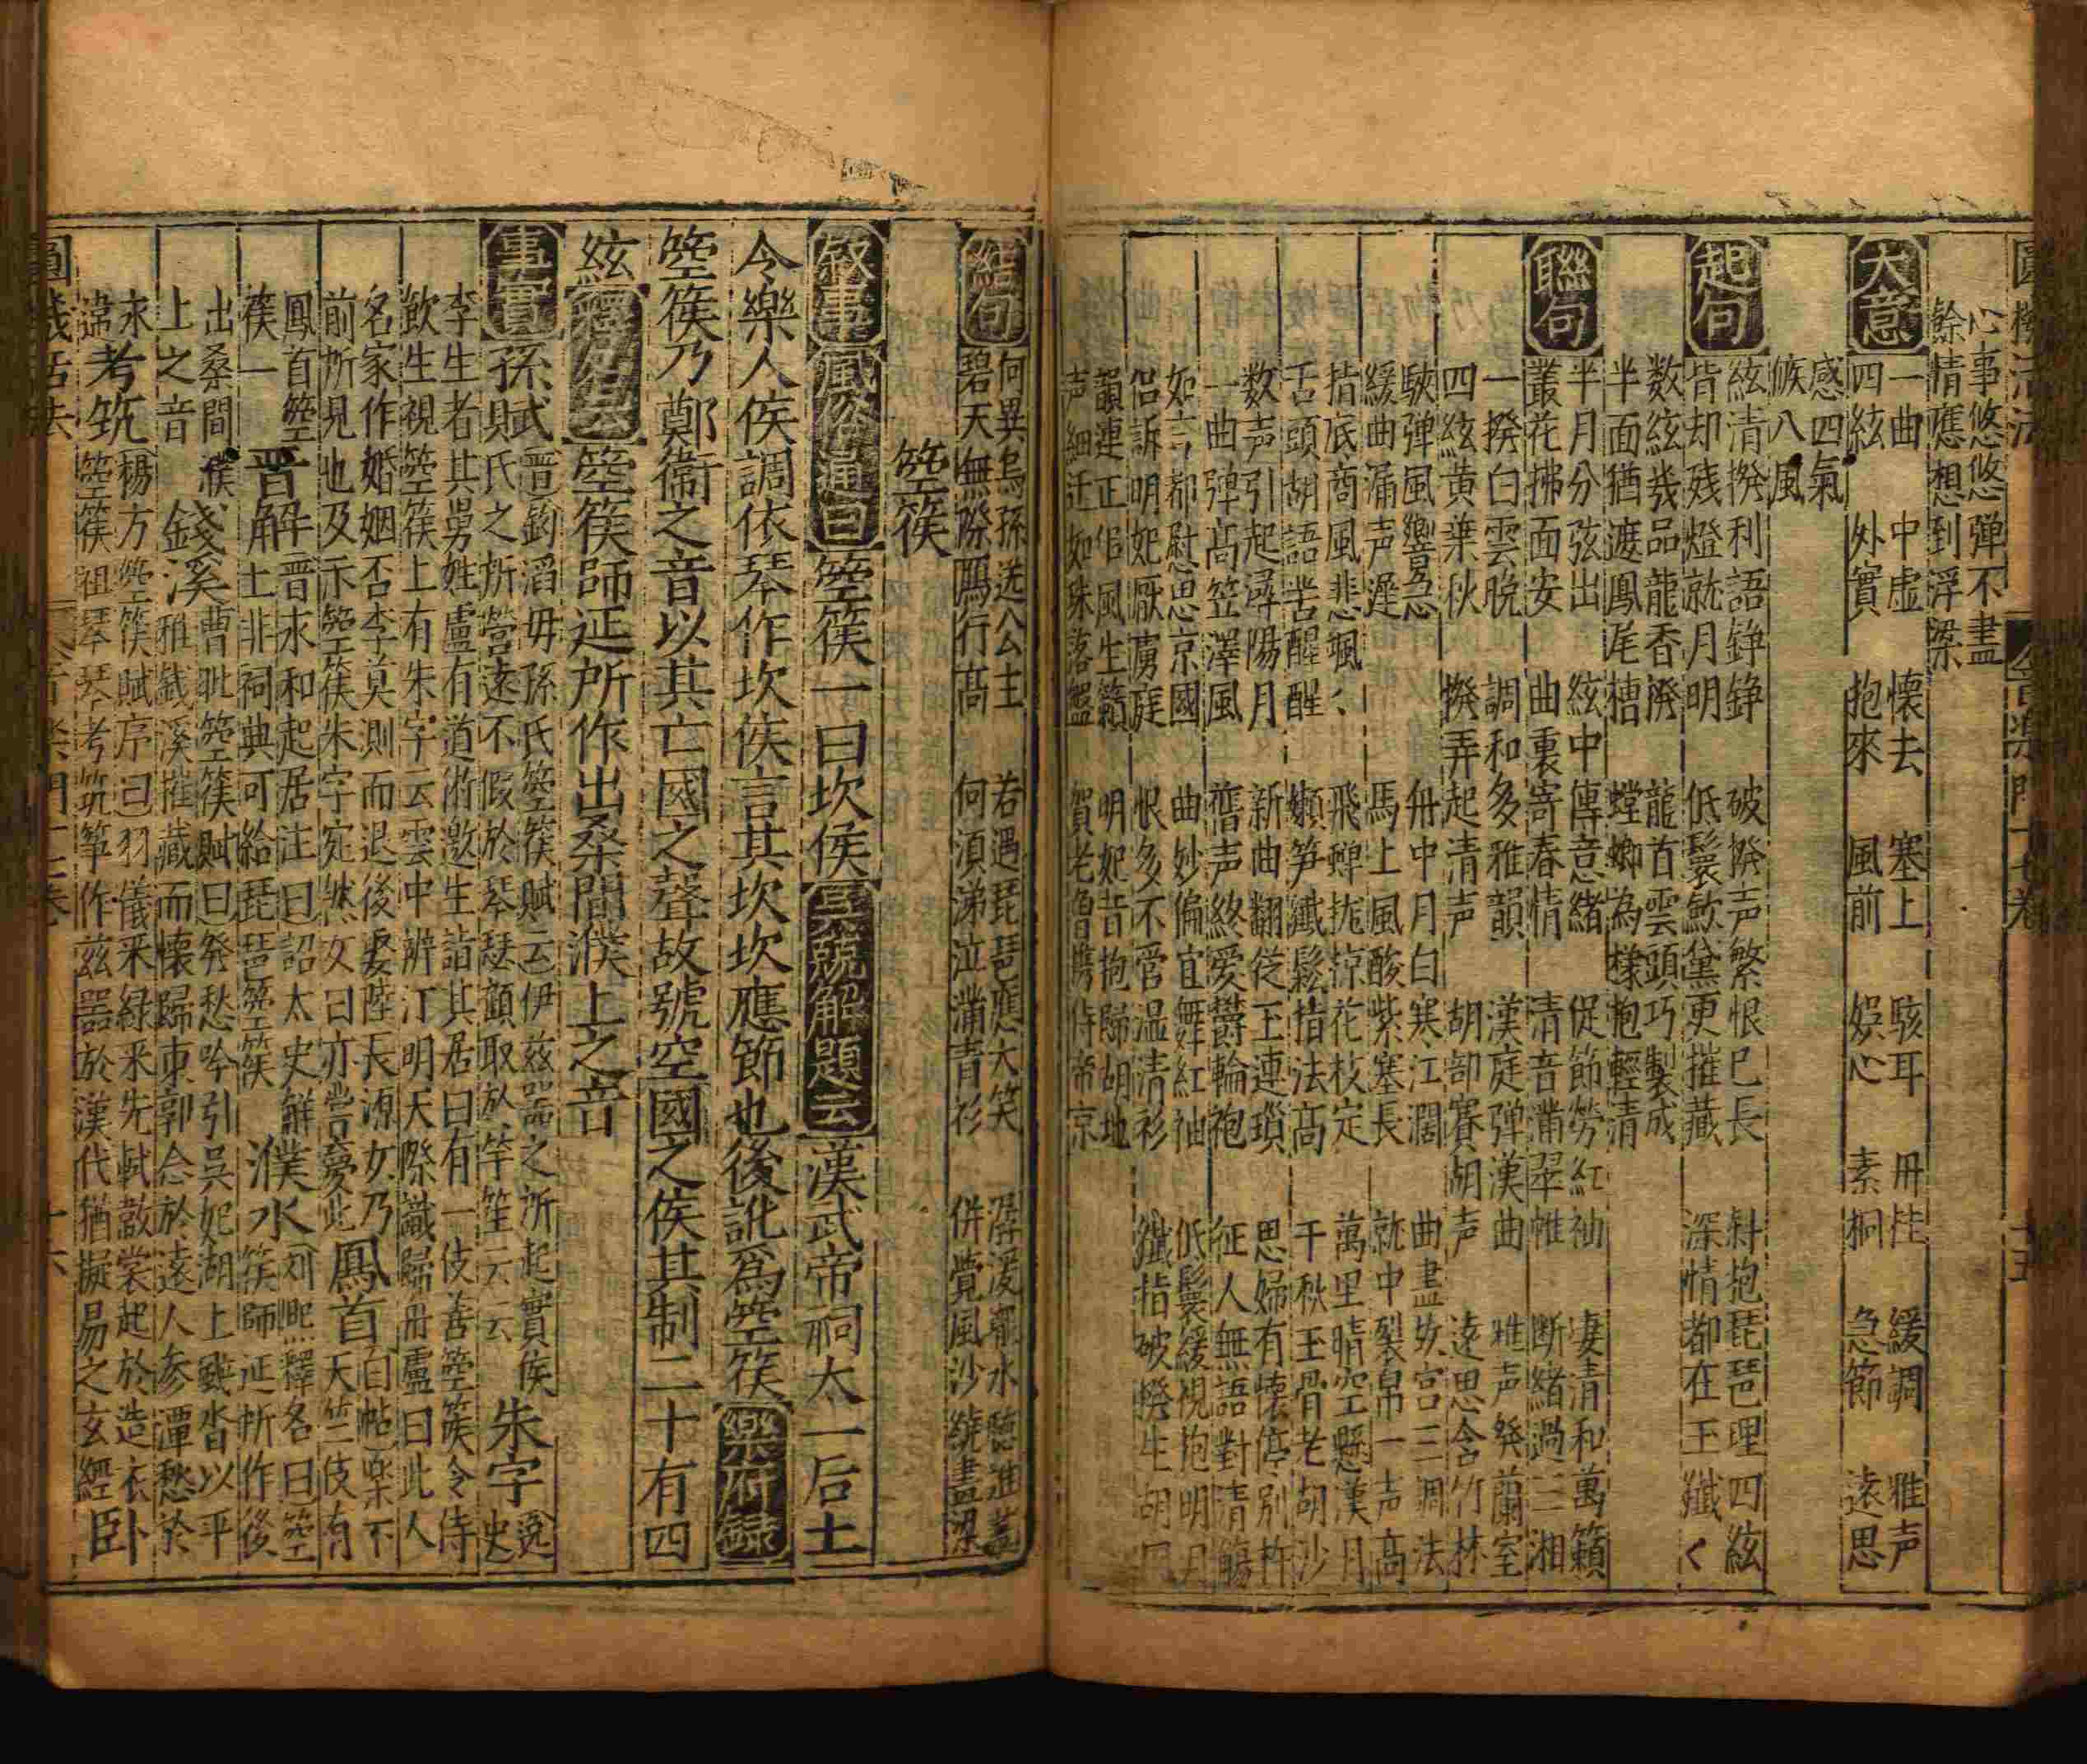 心事悠悠彈不盡
餘情應想到浮梁
大意
一曲 中虛 懷去 塞上 駭耳 緩調 雅声
四絃 外實 抱來 風前 娛心 素桐 急節 遠思
感四氣
候八風
起句
絃清撥利語錚錚 破撥声繁恨已長 斜抱琵琶理四絃
皆却残燈就月明 低鬟歛黛更摧藏 深情都在玉纖く
数絃幾品龍香撥 龍首雲頭巧製成
半面猶渡鳳尾槽 螳螂為樣抱輕清
聯句
半月分弦出 絃中傳意緒 促節勞紅袖 凄清和萬籟
叢花拂面安 曲裏寄春情 清音滿翠帷 断緒過三湘
一撥白雲晩 調和多雅韻 漢庭弹漢曲 雅声發蘭室
四絃黄葉秋 撥弄起清声 胡部賽胡声 遠思含竹林
駛弹風響急 舟中月白寒江濶 曲盡
緩曲漏声遲 馬上風酸紫塞長 就中裂帛一声高
指底商風悲颯 花枝定 萬里晴空懸漢月
舌頭胡語苦醒醒 嬾笋纖鬆指法高 千秋玉骨老胡沙
数声引起潯陽月 新曲翻從玉連瑣 思婦有懷停別杵
一曲彈高笠澤風 舊声終愛欝輪袍 征人無語對清觴
如言都慰思京國 曲妙偏宜舞紅袖 低鬟緩視抱明月
侣訴明妃厭虜庭 恨多不管温清衫 纖指破撥生胡風
韻連正侣風生籟 明妃昔抱歸胡地
声細迁如珠落盤 賀老曾携侍帝京
結句
何異烏孫送公主 若遇琵琶應大笑 潺湲
碧天無際鴈行高 何須涕泣滿青衫 併覺風沙繞畫梁
箜篌
敘事 風俗通曰 箜篌一曰坎侯 吴兢解題云 漢武帝祠太一后土
令樂人侯調依琴作坎侯言其坎坎應節也後訛爲箜篌 樂府錄
箜篌乃鄭衞之音以其亡國之聲故號空國之侯其制二十有四
絃 釋名云 箜篌師延所作出桑間濮上之音
事實 孫賦 晋鈞滔母孫氏箜篌賦云伊兹噐之所起實侯
氏之所營遠不假於琴瑟顧取於竿笙云云 朱字 逸史
李生者其舅姓盧有道術邀生詣其居曰有一伎善箜篌令侍
飲生視箜篌上有朱字云雲中辨江明天際識歸舟盧曰此人
名家作婚姻否李莫則而退後娶陸長源女乃
前所見也及示箜篌朱字宛然女曰亦嘗夢此 鳳首 白帖樂不
鳳首箜 晋解 晋永和起居注曰詔太史觧 濮水 刘熙釋名曰箜
篌一 士非祠典可給琵琶箜篌 篌師延所作後
出桑間濮 錢溪 曹毗箜篌賦曰發愁吟引吳妃湖上颯沓以平
上之音 雅錢溪摧藏而懷歸東郭念於遠人参潭愁於
永 考筑 楊方箜篌賦序曰羽儀采緑采先軾敼裳起於造衣 卧
箜篌祖琴琴考筑筝作兹噐於漢代猶擬易之玄經